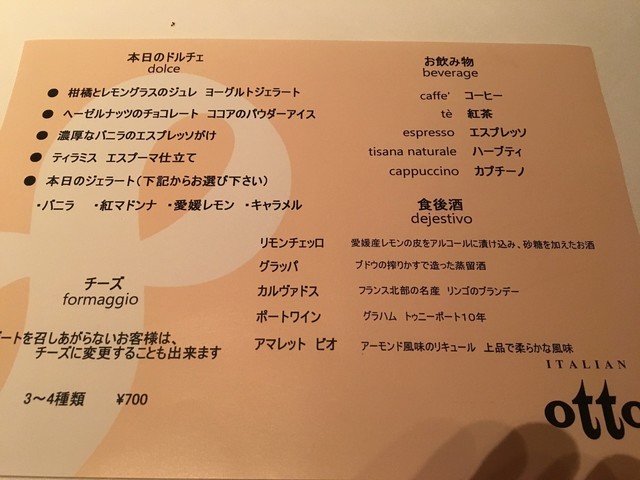 本日のドルチェ
dolce
● 柑橘とレモングラスのジュレ ヨーグルトジェラート
● ヘーゼルナッツのチョコレート ココアのパウダーアイス
● 濃厚なバニラのエスプレッソがけ
● ティラミス エスプーマ仕立て
● 本日のジェラート(下記からお選び下さい)
・バニラ ・紅マドンナ ・愛媛レモン ・キャラメル
お飲み物
beverage
caffe' コーヒー
tè 紅茶
espresso エスプレッソ
tisana naturale ハーブティ
cappuccino カプチーノ
食後酒
dejestivo
リモンチェッロ 愛媛産レモンの皮をアルコールに漬け込み、砂糖を加えたお酒
グラッパ ブドウの搾りかすで造った蒸留酒
カルヴァドス フランス北部の名産 リンゴのブランデー
ポートワイン グラハム トゥニーポート10年
アマレット ピオ アーモンド風味のリキュール 上品で柔らかな風味
チーズ
formaggio
ートを召しあがらないお客様は、
チーズに変更することも出来ます
3～4種類 ¥700
ITALIAN
otto